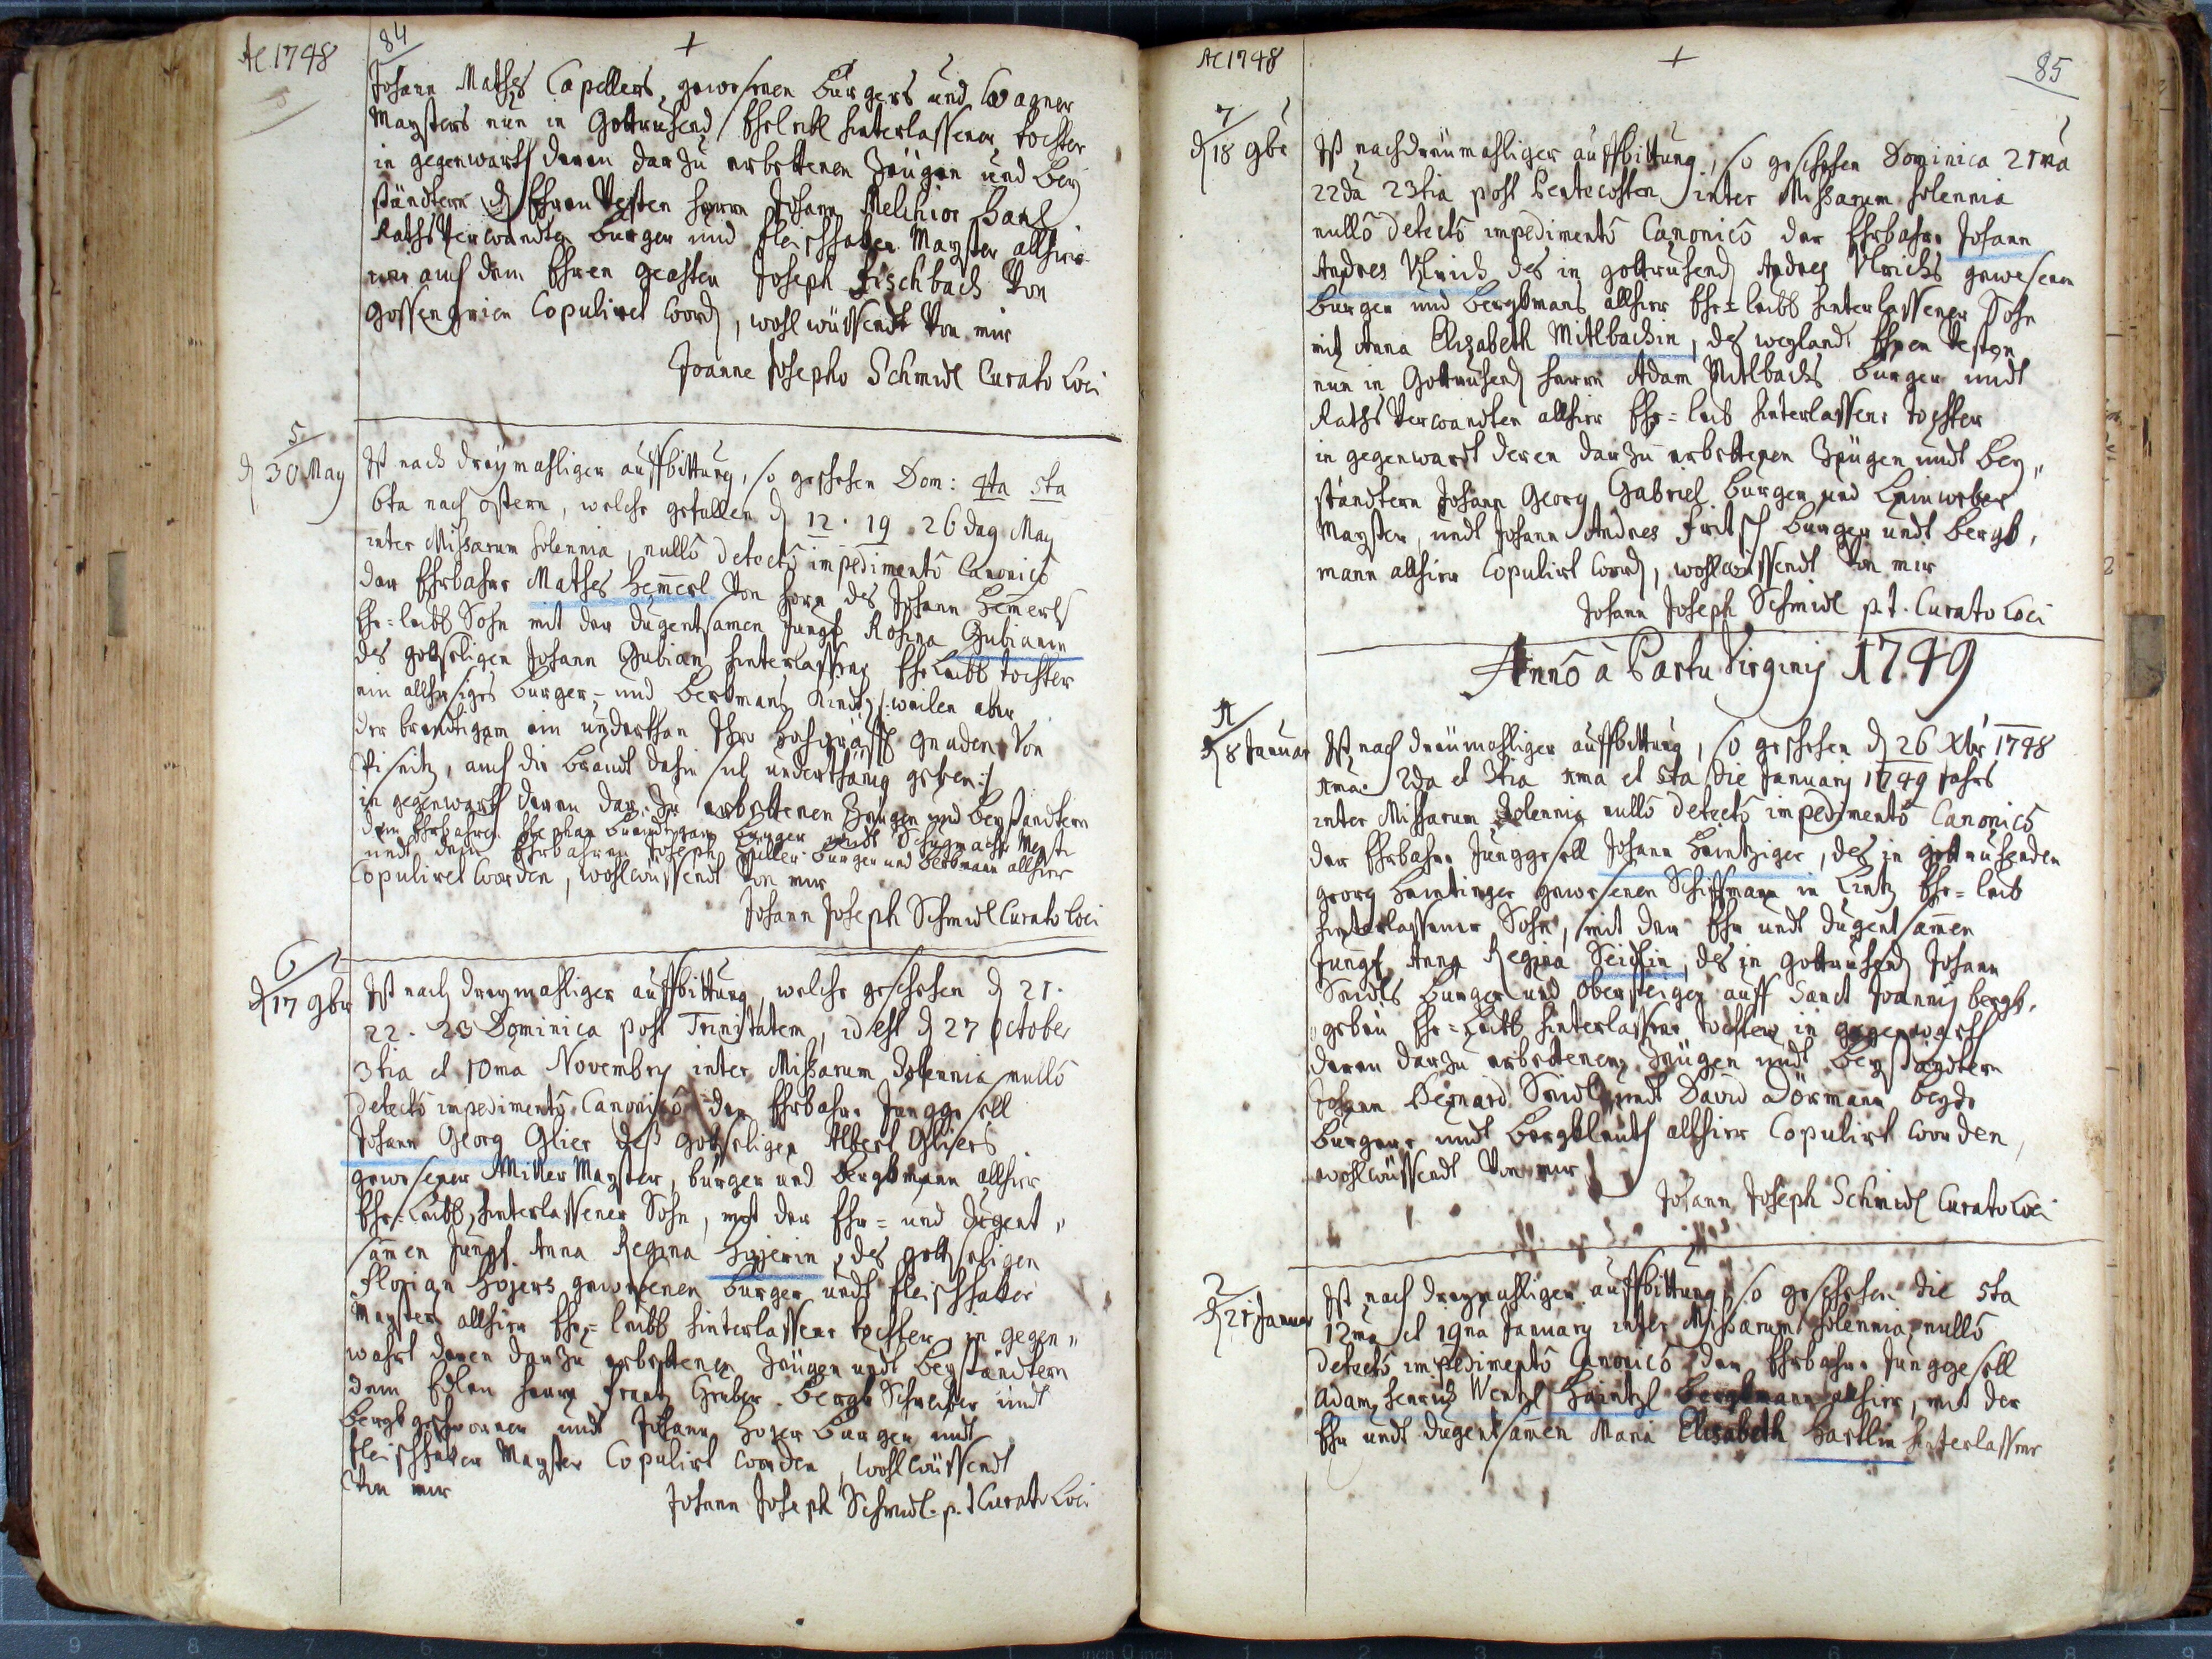 Ae 1748
84
+
Johann Mathes Capellers, gewesenen Burgers und Wagner
Maysters nun in Gottruhend Eheleibl hinterlassener tochter
in gegenwarth deren darzu erbettenen Zeugen und Bey
ständtern d Ehren Vesten herrn Johann Melchior Hanl
Raths Verwandten Burger und Fleischhaker Mayster allhier
wie auch dem Ehren geachten Joseph Fischbach Von
Gossengrien Copuliret word, wohl wüssendt Von mir
Joanne Josepho Schmidl Curato Loci
5
d 30 May
Ist nach dreymahliger auffbittung, so geschehen Dom: 4ta 5ta
6ta nach ostern, welche gefallen d 12. 19. 26 dag May
inter Missarum solennia, nullo detecto impedimento Canonico
der Ehrbahre Mathes Hemerl Von horn des Johann Hemerls
Ehe=leibl Sohn mit der dugentsamen Jungf Rosina Gubianin
des gottseligen Johann Gubian hinterlassene Ehe Leibl tochter
ein allhiesiges Burger= und Berkmans Kindt, weilen aber
der breudtigam ein underthan Ihro Hochgräffl gnaden Von
auch die Braudt dahin sich underthänig geben :/
in gegenwarth deren dar Zu erbettenen Zeugen und Beyständtern
dem Ehrbahren Stephan Burger undt Schugmacher Meyster
undt dem Ehrbahren Joseph Müller Burger und Berkmann allhier
Copuliret worden, wohlwüssendt Von mir
Johann Joseph Schmidl Curato Loci
6
d 17 9ber
Ist nach dreymahliger auffbittung, welche geschehen d 21.
22. 23 Dominica post Trinitatem, id est d 27 October
3tia et 10ma Novembry inter Missarum Solennia nullo
detecto impedimento Canonico der Ehrbahre Junggesell
Johann Georg Glier deß gottseligen Albert Gliers
gewesener Miller Mayster, burger und Bergkmann allhier
Ehe=Leibl hinterlassener Sohn, mit der Ehr= und dugent"
samen Jungf. Anna Regina Hojerin, des gottseligen
Florian Hojers gewesenen Burger undt Fleischhaker
Maysters allhier Ehe=leibl hinterlassene tochter in gegen"
wahrt deren darzu erbettenen Zeugen undt Beyständtern
dem Edlen herrn Frantz Gruber Bergk Schreiber undt
Bergkgeschworner undt Johann Hojer Burger undt
Fleischhaker Mayster Copulirt worden, wohlwüssendt
Von mir
Johann Joseph Schmidl. p. t Curato Loci
Ae 1748
+
85
7
d 18 9br
Ist nachdreumahliger auffbittung, so geschehen Dominica 21ma
22da 23tia post Pentecosten inter Missarum solennia
nullo detecto impedimento Canonico der Ehrbahre Johann
Andres Ulrich des in gottruhend Andres Ulrichs gewesenen
Burger und Bergkmans allhier Ehe=leibl hinterlassener Sohn
mit Anna Elisabeth Mitlbachin, des weyland Ehren Vesten
nun in Gottruhend herrn Adam Mitlbachs Burger undt
Raths Verwandten allhier Ehe=leib hinterlassene tochter
in gegenwardt deren darzu erbettenen Zeugen undt Bey"
ständtern Johann Georg Gabriel Burger und Leinweber
Mayster, undt Johann Andres Fritsch Burger undt Bergk,
mann allhier Copulirt word, wohlwüssendt Von mir
Johann Joseph Schmidl p. t. Curato Loci
Anno à Partu Virginis 1749
1
d 8 Januar
Ist nach dreumahliger auffbittung, so geschehen d 26 Xbr 1748
1ma. 2da et 3tia 1ma et 5ta die January 1749 Jahrs
inter Missarum Solennia nullo detecto impedimento Canonico
der Ehrbahre Junggesell Johann Haintziger, des in gottruhenden
Georg Haintinger gewesenen Schiffmann in Lintz Ehe=leib
hinterlassener Sohn, mit der Ehr undt dugentsamen
Jungf. Anna Regina Seidlin, des in gottruhend Johann
Seidls Burger und Obersteiger auff Sanct Joannis bergk,
"gebäu Ehe=Leibl hinterlassene tochter in gegenwarth
deren darzu erbettenen Zeugen undt Beyständtern
Johann Bernard Seidl undt David Dörmann beyde
Burger undt Bergkleuth allhier Copulirt worden,
wohlwüssendt Von mir
Johann Joseph Schmidl Curato Loci
2
d 21 Januar
Ist nach dreymahliger auffbittung, so geschehen die 5ta
12ma et 19na January inter Missarum solennia, nullo
detecto impedimento Canonico der Ehrbahre Junggesell
Adam Henrich Wentzl Haintzl Bergkmann allhier, mit der
Ehr undt dugentsamen Maria Elisabeth Hartlin hinterlassene